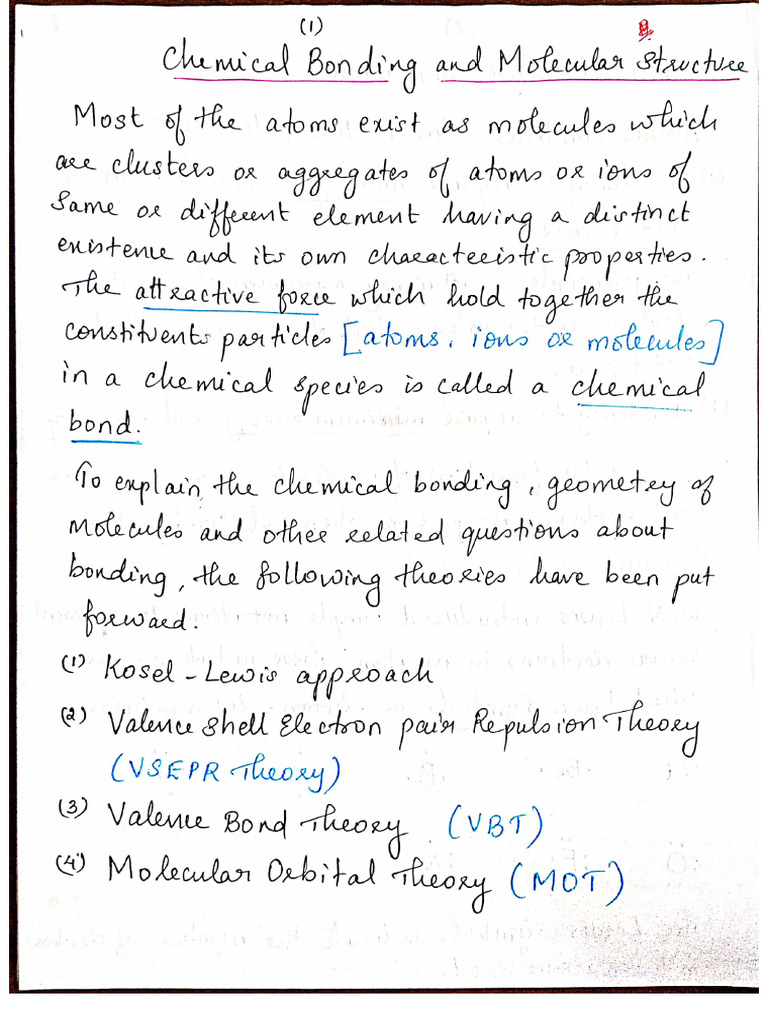 (1)
Chemical Bonding and Molecular Structure
Most of the atoms exist as molecules which
are clusters or aggregates of atoms or ions of
Same or different element having a distinct
existence and its own characteristic properties.
The attractive force which hold together the
constituents particles [atoms, ions or molecules]
in a chemical species is called a chemical
bond.
To explain the chemical bonding, geometry of
molecules and other related questions about
bonding, the following theories have been put
forward.
(1) Kosel-Lewis approach
(2) Valence Shell Electron pair Repulsion Theory
(VSEPR Theory)
(3) Valence Bond Theory (VBT)
(4) Molecular Orbital Theory (MOT)